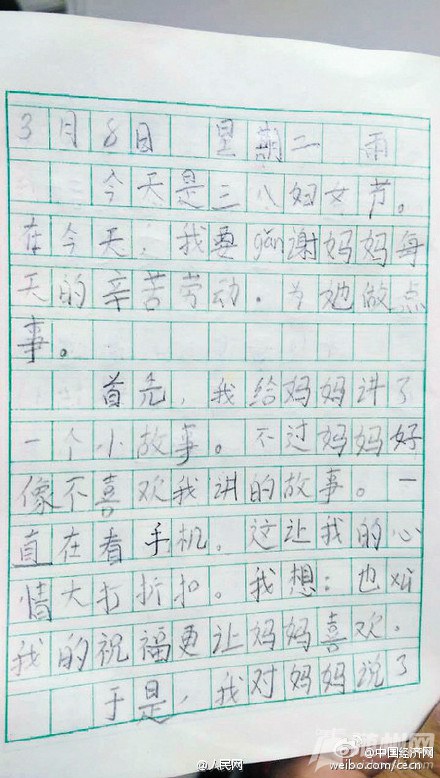 3月8日 星期二 雨
今天是三八妇女节。
在今天，我要gǎn谢妈妈每
天的辛苦劳动。为她做点
事。
首先，我给妈妈讲了
一个小故事。不过妈妈好
像不喜欢我讲的故事。一
直在看手机。这让我的心
情大打折扣。我想：也
我的祝福更让妈妈喜欢。
于是，我对妈妈说了
@人民网
@中国经济网
weibo.com/cecn